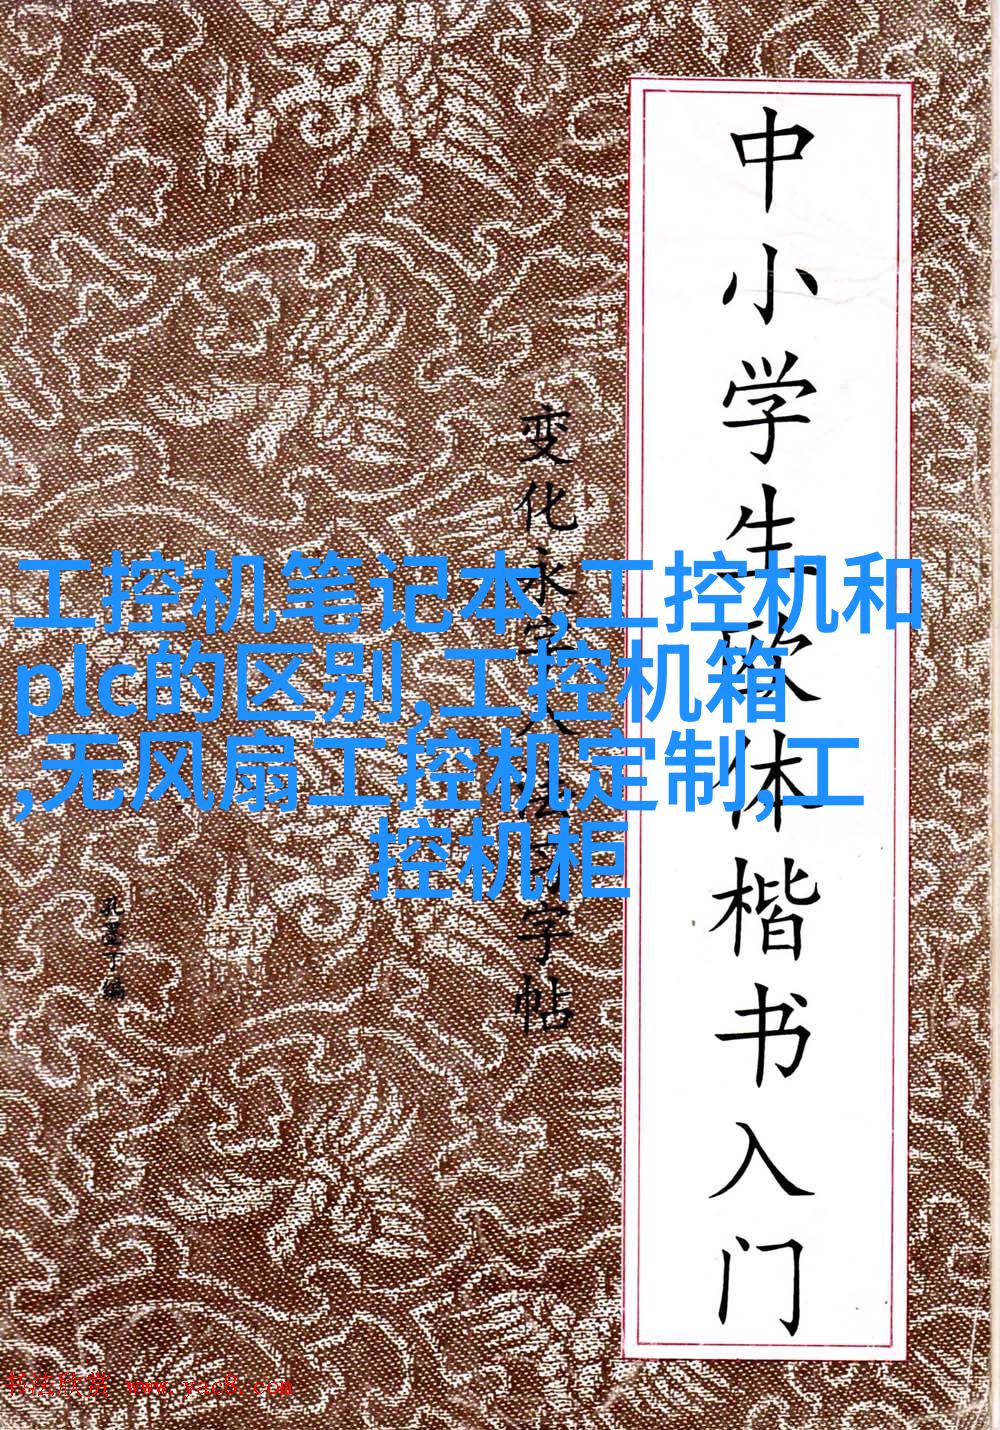 中小学生欧体楷书入门
变化永字八法习字帖
孔墨丁编
工控机笔记本,工控机和
plc的区别,工控机箱
,无风扇工控机定制,工
控机柜
书法欣赏 www.yac8.com